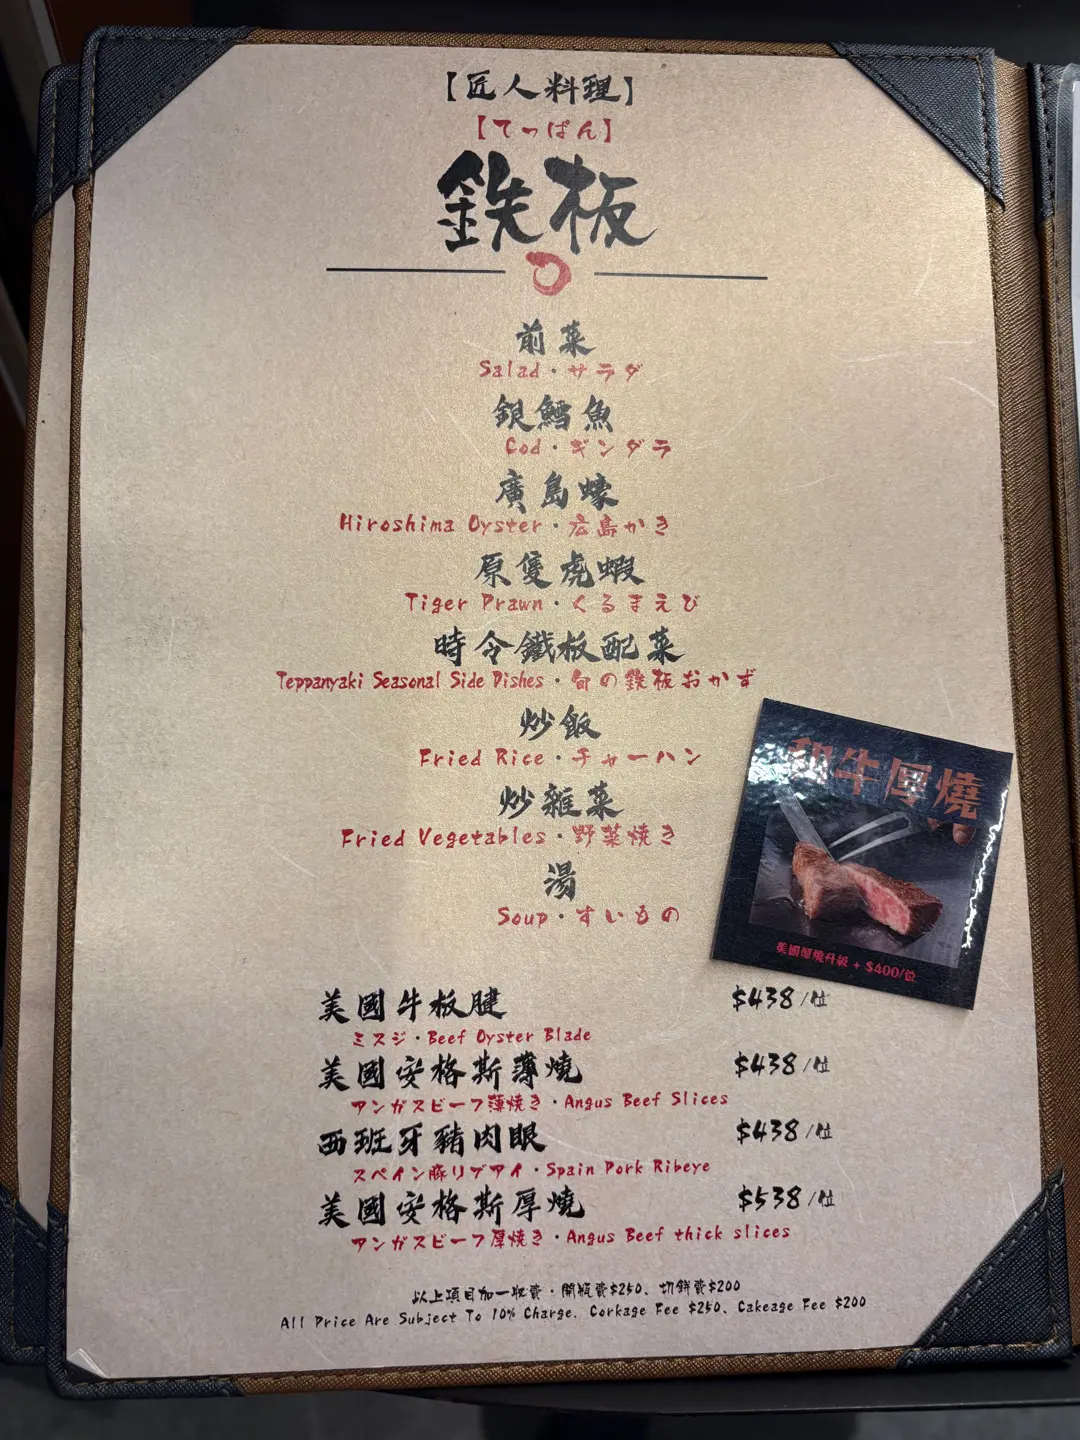 【匠人料理】
【てっぱん】
鉄板
前菜
Salad・サラダ
銀鱈魚
Cod・ギンダラ
廣島蠔
Hiroshima Oyster・広島かき
原隻虎蝦
Tiger Prawn・くるまえび
時令鐵板配菜
Teppanyaki Seasonal Side Dishes・旬の鉄板おかず
炒飯
Fried Rice・チャーハン
炒雜菜
Fried Vegetables・野菜焼き
湯
Soup・すいもの
和牛厚燒
美國厚燒升級 + $400/位
美國牛板腱 $438/位
ミスジ・Beef Oyster Blade
美國安格斯薄燒 $438/位
アンガスビーフ薄焼き・Angus Beef Slices
西班牙豬肉眼 $438/位
スペイン豚リブアイ・Spain Pork Ribeye
美國安格斯厚燒 $538/位
アンガスビーフ厚焼き・Angus Beef thick slices
以上項目加一收費・開瓶費$250、切餅費$200
All Price Are Subject To 10% Charge. Corkage Fee $250、Cakeage Fee $200